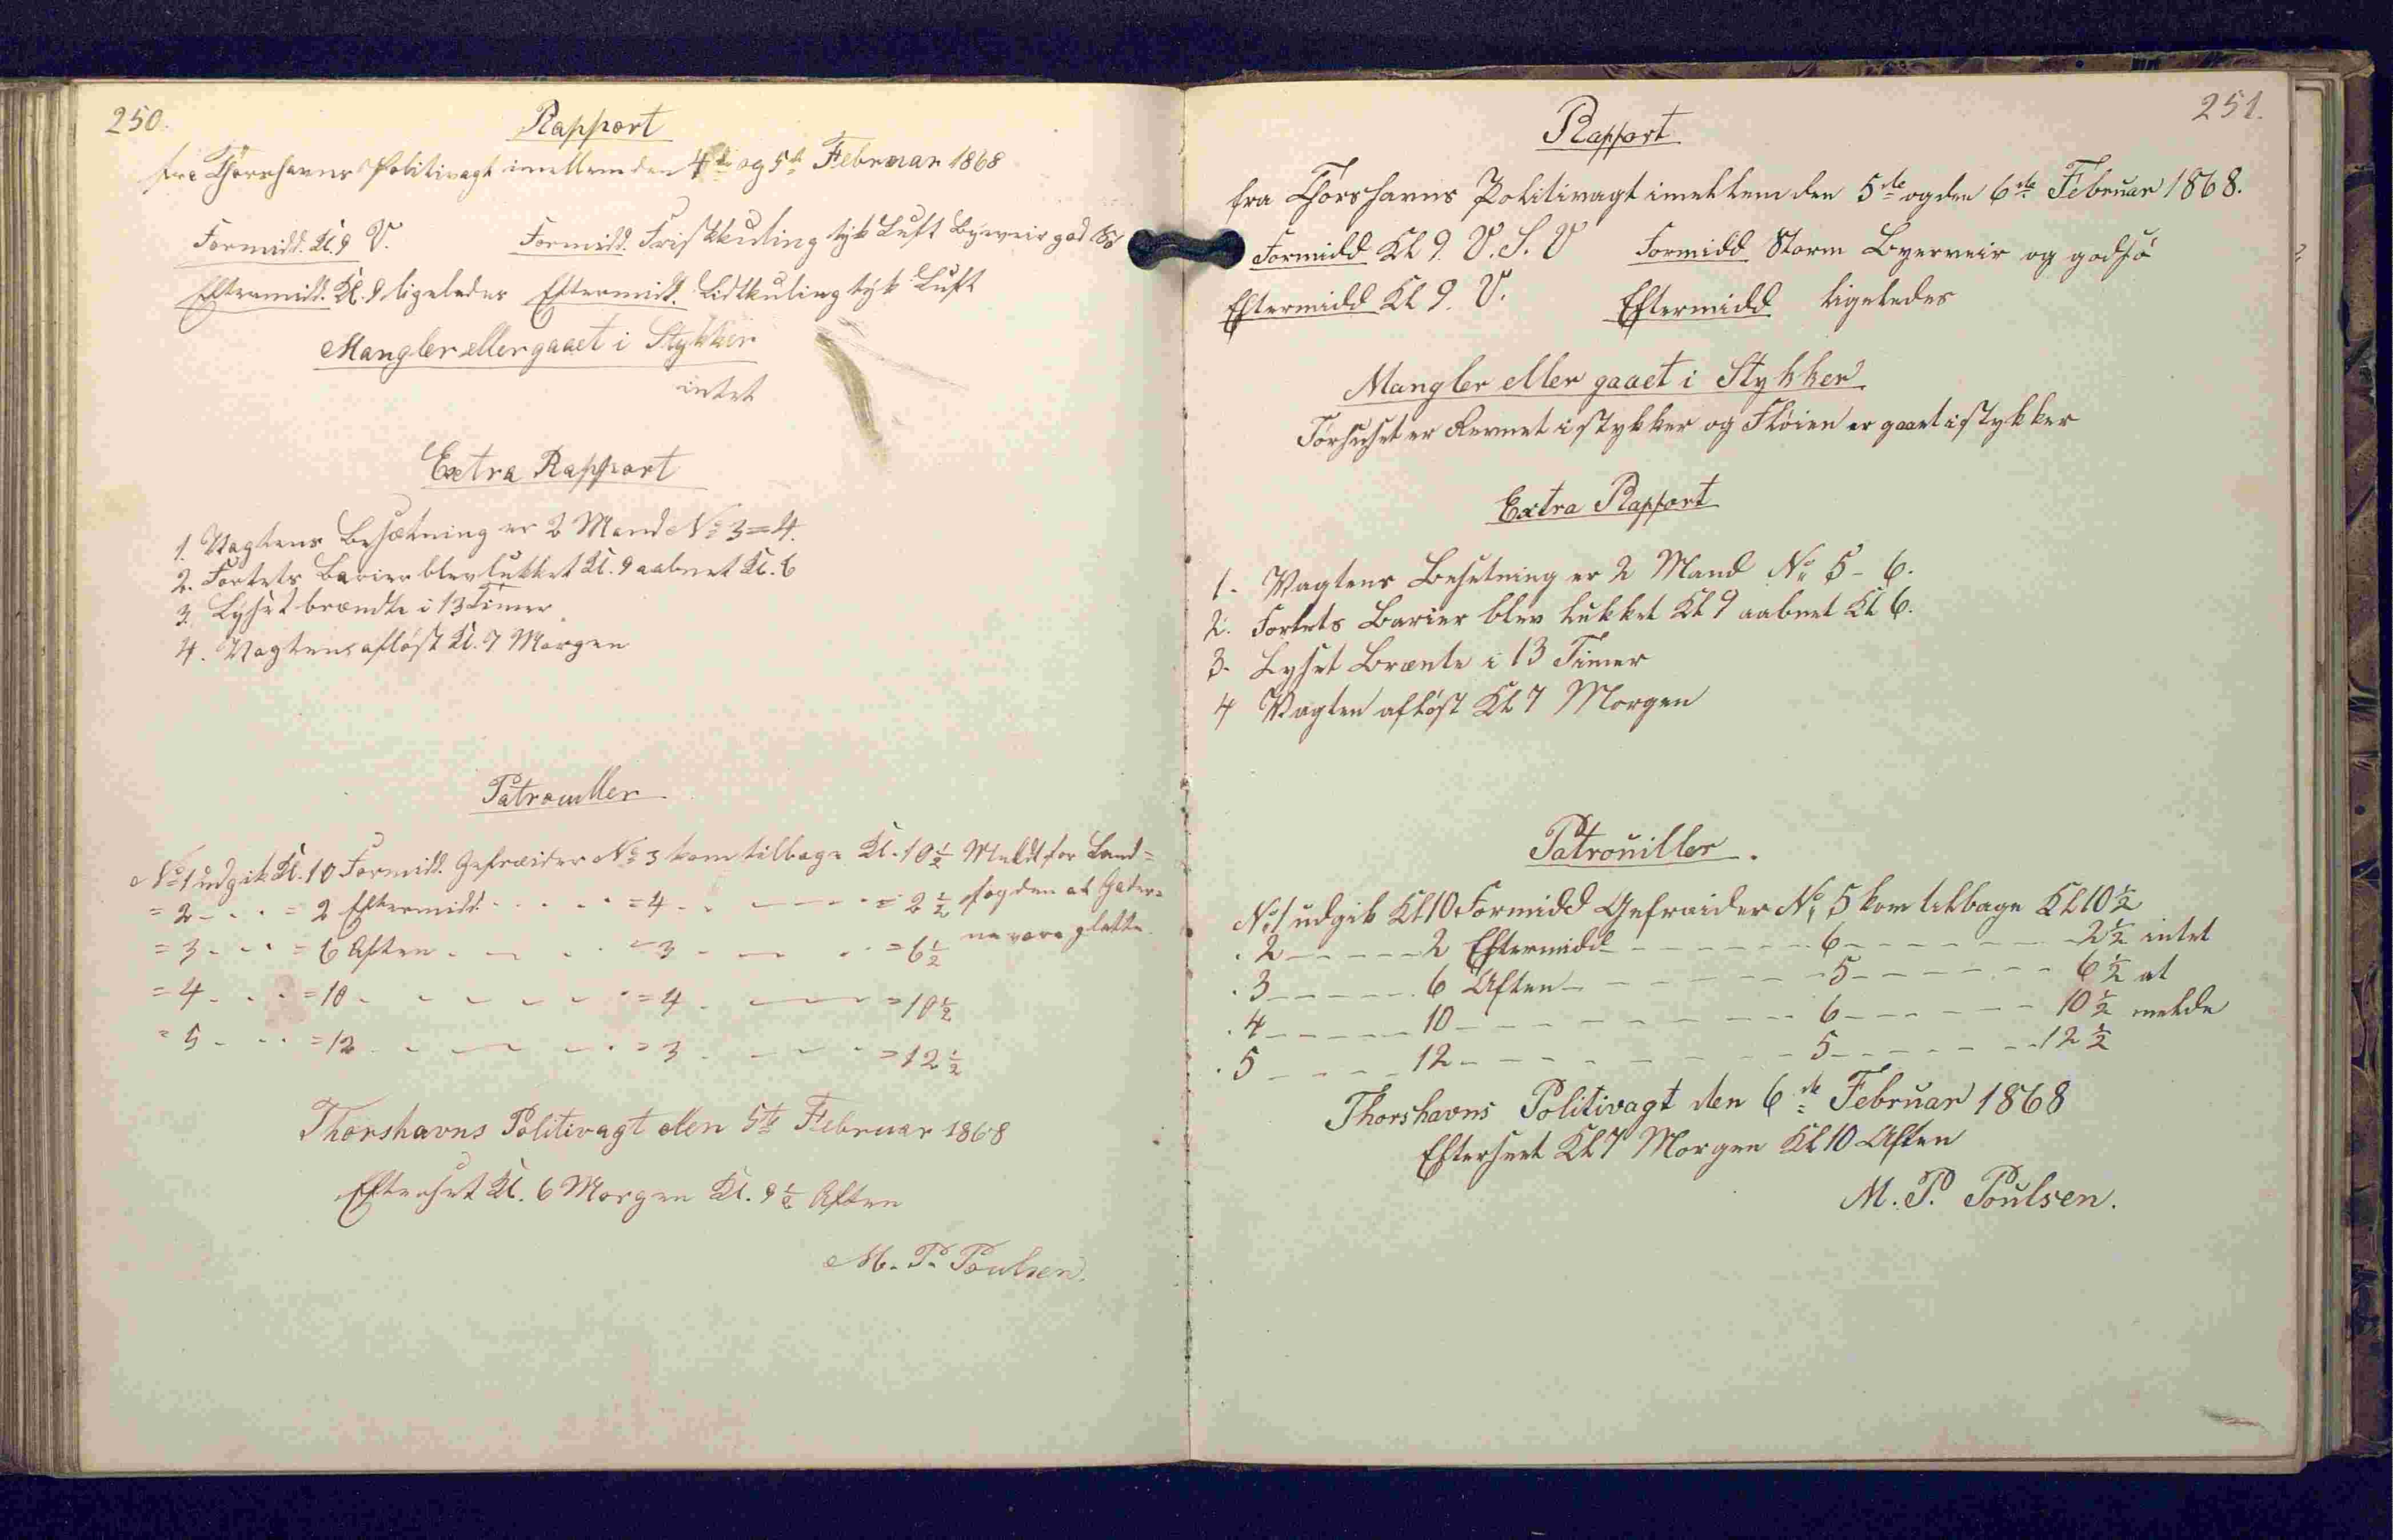 250.
Rapport
fra Thorshavns Politivagt imellem den 4de og 5te Februar 1868
Formidd. Kl. 9 V. Formidd. Friskkuling tyk Luft Byveir god Sø
Eftermidd. Kl. 9 ligeledes Eftermidd. Lidtkuling tyk Luft
Mangler eller gaaet i Stykker
intet
Extra Rapport
1. Vagtens Besætning er 2 Mand No 3=4.
2. Fortets Barier blev lukket Kl. 9 aabnet Kl. 6
3. Lyset brændte i 13 Timer
4. Vagtens afløst Kl. 7 Morgen
Patrouller
No 1 udgik Kl. 10 Formidd. Gefraider No 3 kom tilbage Kl. 10½ Meldt for Land=
= 2 - - - = 2 Eftermidd. - - - - = 4 - - - - - = 2½ fogden at Gader=
= 3 - - - = 6 Aften - - - - = 3 - - - - = 6½ ne vare glatte.
= 4 - - - = 10 - - - - - = 4 - - - - = 10½
= 5 - - - = 12 - - - - - = 3 - - - - = 12½
Thorshavns Politivagt den 5te Februar 1868
Efterset Kl. 6 Morgen Kl. 9½ Aften
M. P. Poulsen.
251.
Rapport
fra Thorshavns Politivagt imellem den 5te og den 6te Februar 1868.
Formidd Kl 9. V. S. V Formidd Storm Byerveir og godsø
Eftermidd Kl 9. V. Eftermidd ligeledes
Mangler eller gaaet i Stykker
er Revnet i stykker og Fløien er gaaet i stykker
Extra Rapport
1. Vagtens Besetning er 2 Mand No 5 - 6.
2. Fortets Barier blev lukket Kl 9 aabnet Kl 6.
3. Lyset Brænte i 13 Timer
4 Vagten afløst Kl 7 Morgen
Patrouiller.
No 1 udgik Kl 10 Formidd Gefraider No 5 kom tilbage Kl 10½
. 2 - - - - - 2 Eftermidd - - - - - - 6 - - - - - - 2½ intet
. 3 - - - - - 6 Aften - - - - - - 5 - - - - - - 6½ at
. 4 - - - - - 10 - - - - - - - - 6 - - - - - - 10½ melde
. 5 - - - - - 12 - - - - - - - - 5 - - - - - - 12½
Thorshavns Politivagt den 6te Februar 1868
Efterseet Kl 7 Morgen Kl 10 Aften
M. P. Poulsen.